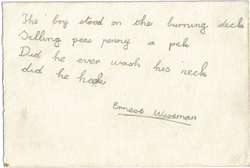 The boy stood on the burning deck
Selling pees penny a pek
Did he ever wash his neck
did he heck
Ernest Wiseman